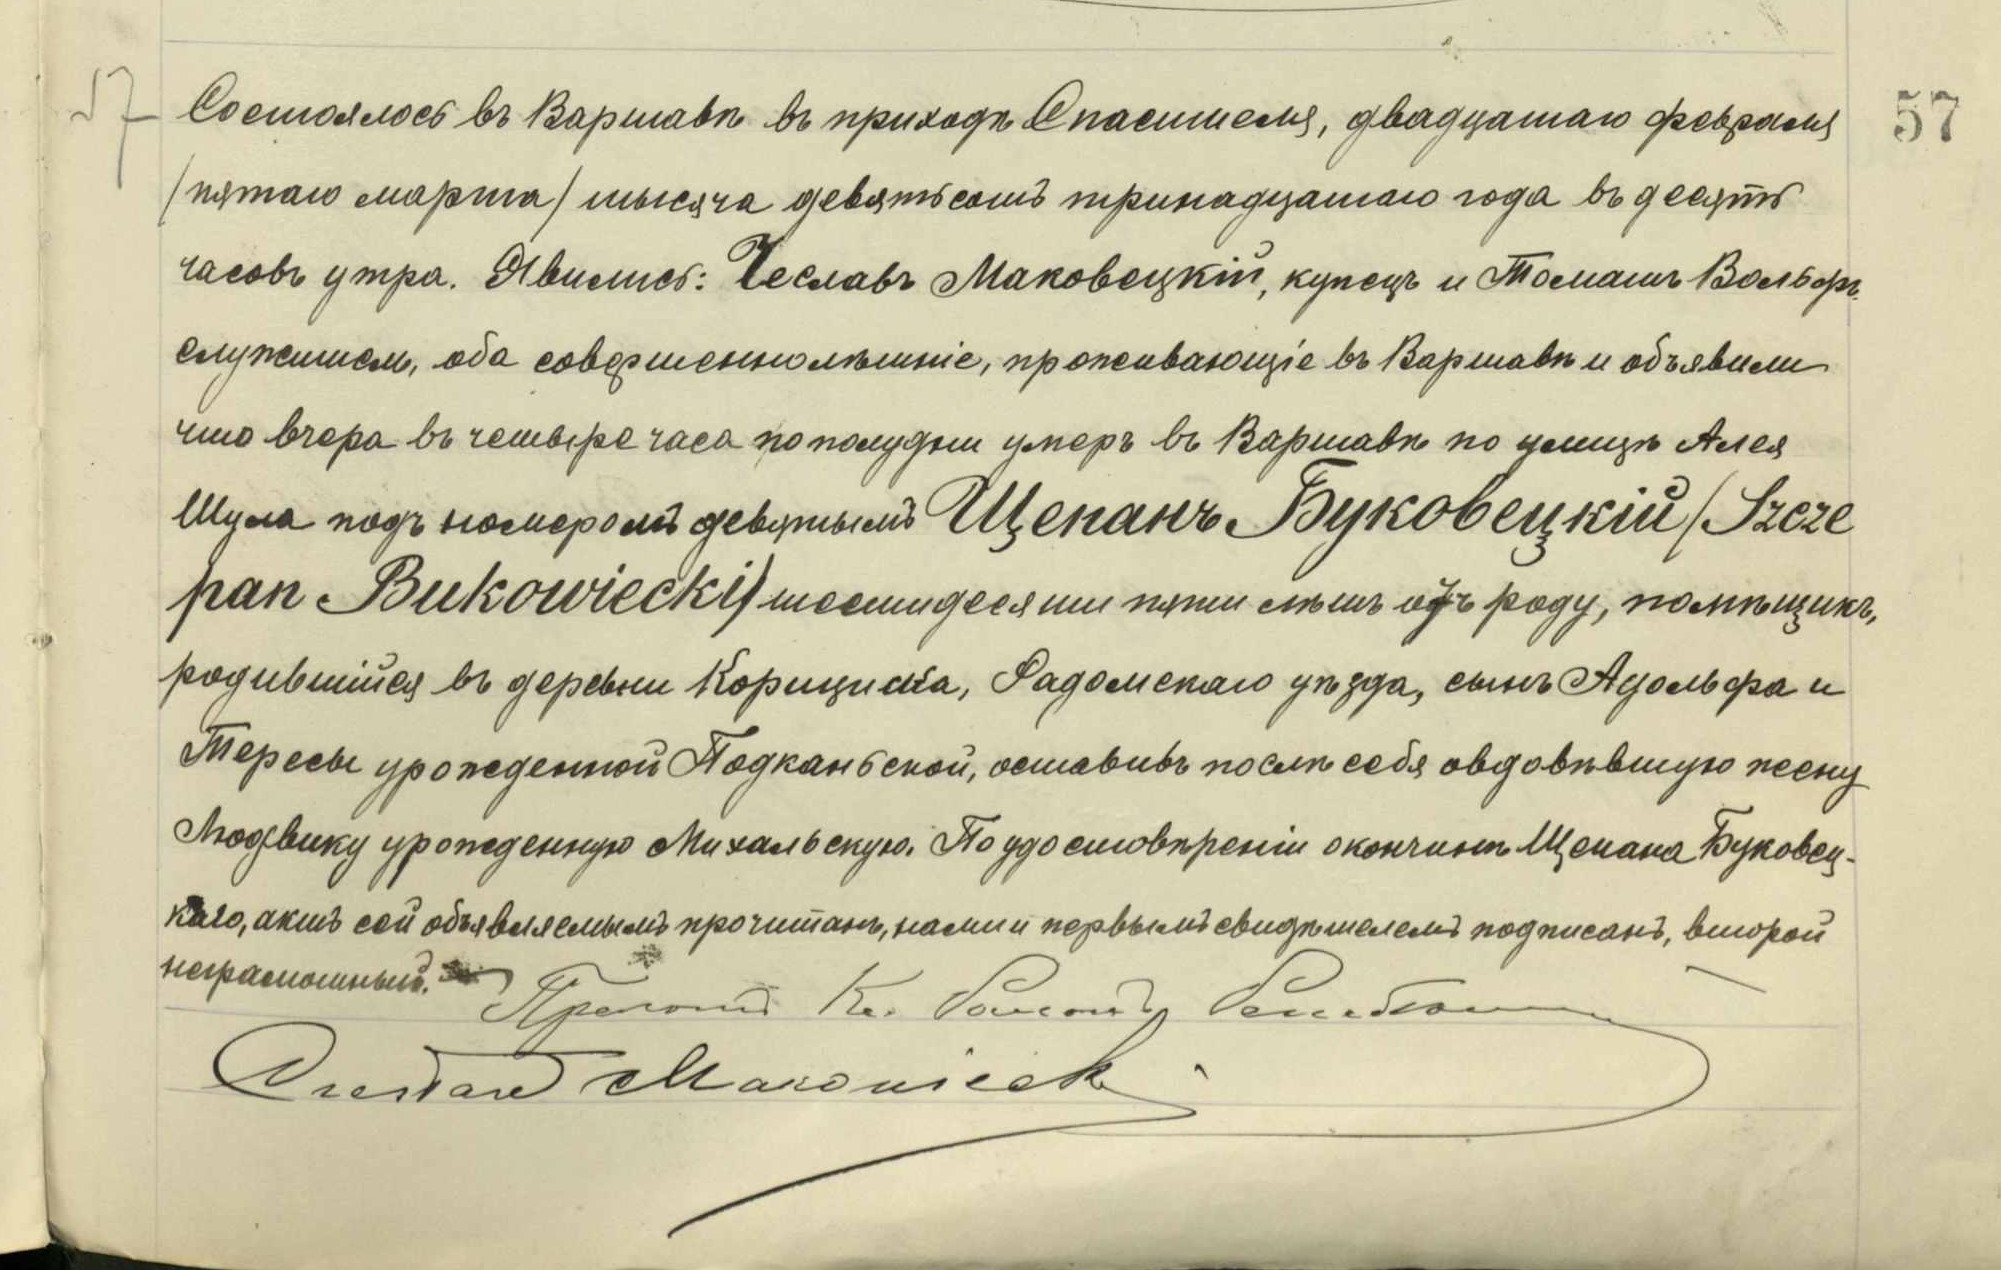 57 Состоялось въ Варшавѣ въ приходѣ Спасителя, двадцатаго февраля 57
/пятаго марта/ тысяча девятьсотъ тринадцатаго года въ десять
часовъ утра. Явились: Чеславъ Маковецкій, купецъ и Томашъ Вольфъ
служитель, оба совершеннолѣтніе, проживающіе въ Варшавѣ и объявили
что вчера въ четыре часа пополудни умеръ въ Варшавѣ по улицѣ Алея
Шуха подъ номеромъ девятымъ Щепанъ Буковецкій /Szcze
pan Bukowiecki/ шестидесяти пяти лѣтъ отъ роду, помѣщикъ,
родившійся въ деревни Корициска, Радомскаго уѣзда, сынъ Адольфа и
Тересы урожденной Подканьской, оставивъ послѣ себя овдовѣвшую жену
Людвику урожденную Михальскую. По удостовѣреніи окончинѣ Щепана Буковец-
каго, актъ сей объявляемымъ прочитанъ, нами и первымъ свидѣтелемъ подписанъ, второй
неграмотный.
Czesław Makowiecki